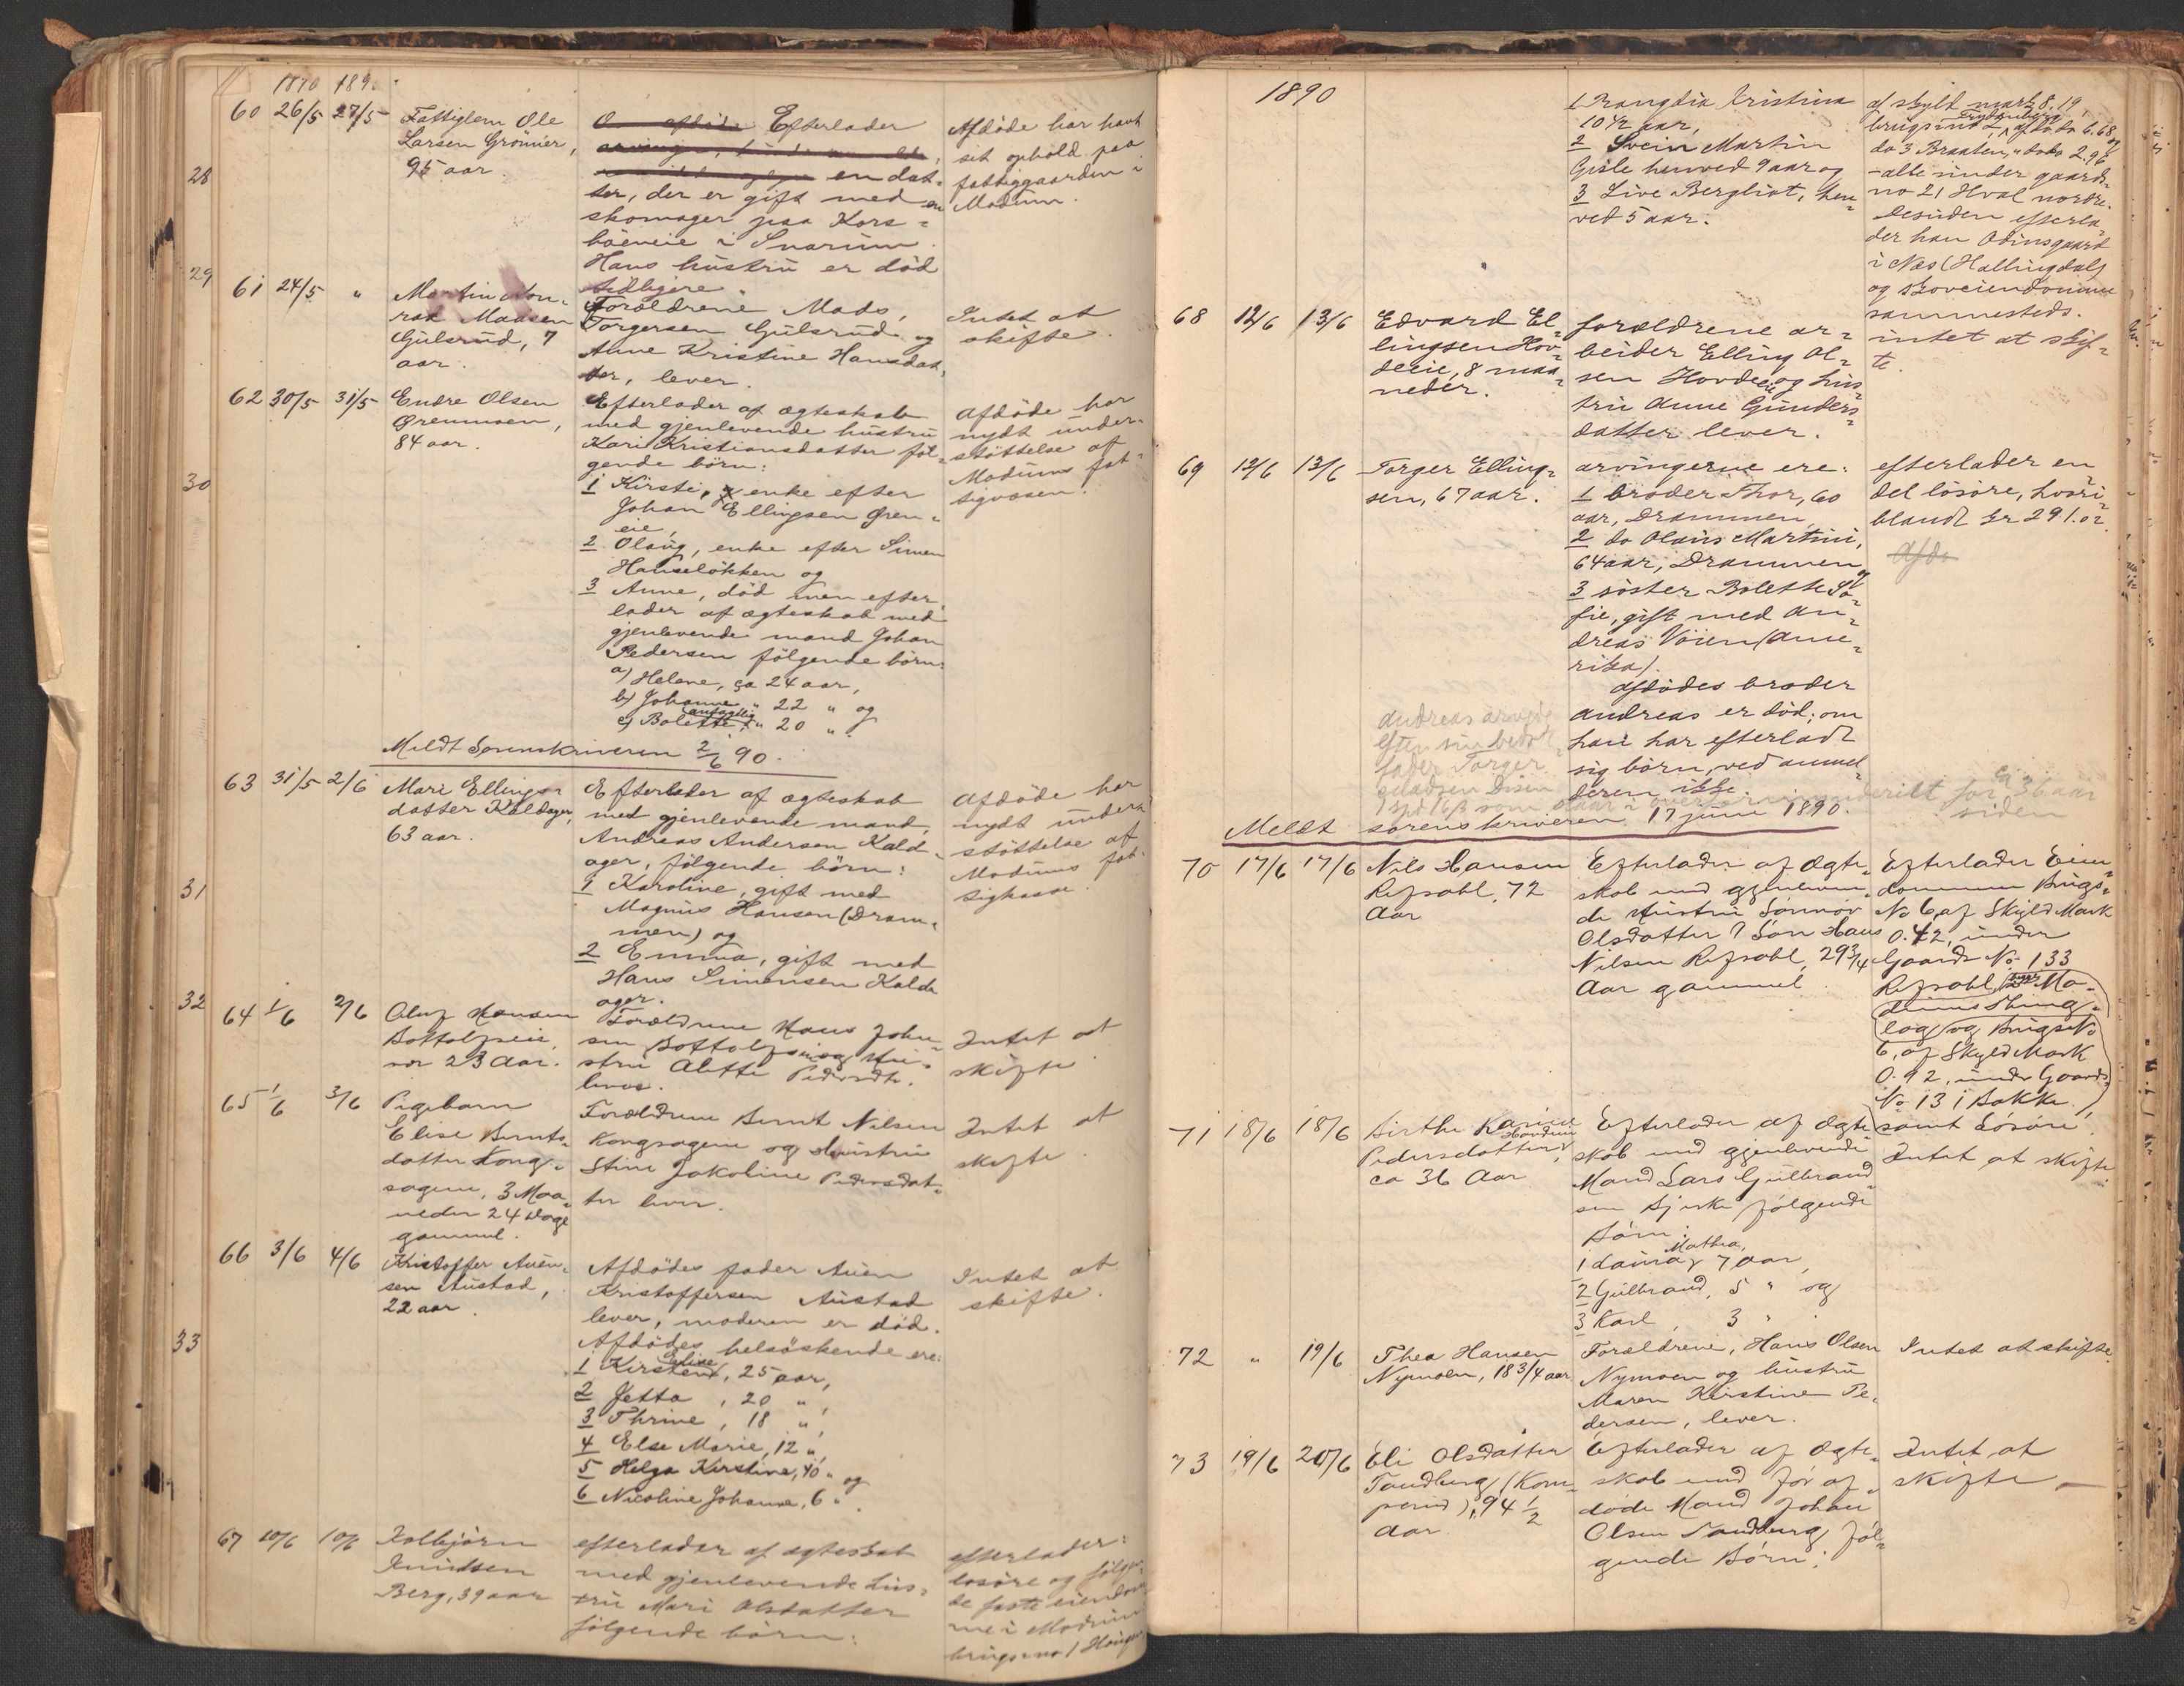 1890 189
60 26/5 27/5 Fattiglem Ole
Larsen Grönner,
95 aar.
Efterlader
en dat-
ter, der er gift med en
skomager paa Kors-
böeneie i Snarum.
Hans hustru er död
tidligere.
Afdöde har havt
sit ophold paa
fattiggaarden i
Modum.
28
29
61 24/5 " Martin
Madsen
Gulsrud, 7
aar.
Forældrene Mads
Torgersen Gulsrud og
Anne Kristine Hansdat-
ter, lever.
Intet at
skifte.
62 30/5 31/5 Endre Olsen
Grenmoen,
84 aar.
Efterlader af ægteskab
med gjenlevende hustru
Kari Kristiansdatter föl-
gende börn:
1 Kirsti, enke efter
Johan Ellingsen Gren-
eie,
2 Olaug, enke efter Simen
Hanselökken og
3 Anne, död men efter-
lader af ægteskab med
gjenlevende mand Johan
Pedersen fölgende börn:
a) Helene, ca 24 aar,
b) Johanne " 22 " og
c) Bolette " 20 "
afdöde har
nydt under-
stöttelse af
Modums fat-
tigvæsen.
30
Meldt Sorenskriveren 2/6 90.
63 31/5 2/6 Mari Ellings-
datter Kaldager,
63 aar.
Efterlader af ægteskab
med gjenlevende mand,
Andreas Andersen Kald-
ager, fölgende börn:
1 Karoline, gift med
Magnus Hansen (Dram-
men) og
2 Emma, gift med
Hans Simensen Kald-
ager.
Afdöde har
nydt under-
stöttelse af
Modums fat-
tigkasse.
31
32
64 1/6 2/6 Oluf Hansen
Bottolfseie,
23 Aar.
Forældrene Hans John-
sen Bottolfseie og Hu-
stru Alette Pedersdtr.
lever.
Intet at
skifte
65 1/6 3/6 Pigebarn
Elise Bernts-
datter Kong-
sagene, 3 Maa-
neder 24 Dage
gammel.
Forældrene Bernt Nilsen
Kongsagene og Hustru
Stine Jakobine Pedersdat-
ter lever.
Intet at
skifte.
66 3/6 4/6 Kristoffer Auen-
sen Austad,
22 aar.
Afdödes fader Auen
Kristoffersen Austad
lever, moderen er död.
Afdödes helsöskende ere:
Elise
1 Kirsten, 25 aar,
2 Jetta, 20 "
3 Thrine, 18 "
4 Else Marie, 12 "
5 Helga Kirstine, 10 " og
6 Nicoline Johanne, 6 "
Intet at
skifte.
33
67 10/6 10/6 Kolbjörn
Knudsen
Berg, 39 aar
efterlader af ægteskab
med gjenlevende hus-
tru Mari Olsdatter
fölgende börn:
efterlader:
lösöre og fölgen-
de faste eiendom-
me i Modum
brugs-no 1
1890
1 Rangdia Kristina
10 1/2 aar,
2 Svein Martin
Gisle henved 9 aar og
3 Live Bergliot, hen-
ved 5 aar.
af skyld mark 8.19,
Frydenberg
brugsno 2, af dodo 6.68 og
do 3 Braaten, " dodo 2.96
-alt under gaards-
no 21 Hval nordre.
Desuden efterla-
der han Odinsgaard
i Næs (Hallingdal)
og skoveiendomme
sammesteds.
68 12/6 13/6 Edvard El-
lingsen Hov-
deeie, 8 maa-
neder.
forældrene ar-
beider Elling Ol-
sen Hovdeeie og hus-
tru Anne Gunders-
datter lever.
intet at skif-
te.
69 12/6 13/6 Torger Elling-
sen, 67 aar.
arvingerne ere:
1 broder Thor, 60
aar, Drammen,
2 do Olaus Martin,
64 aar, Drammen og
3 söster Bolette So-
fie, gift med An-
dreas Vöien (Ame-
rika).
Afdödes broder
Andreas er död; om
han har efterladt
sig börn, ved anmel-
deren ikke.
efterlader en
del lösöre, hvori-
blandt kr 291.02.
Afdö
Andreas
efter sin
fader Torger
36 aar
siden
Meldt sorenskriveren 17 juni 1890.
70 17/6 17/6 Nils Hansen
Refsahl, 72
Aar
Efterlader af Ægte-
skab med gjenleven-
de Hustru Sönnöv
Olsdatter 1 Sön Hans
Nilsen Refsahl, 29 3/4
Aar gammel
Efterlader Eien-
dommen Brugs-
No 6, af Skyld Mark
0.42, under
Gaards No 133
Refsahl, Mo-
dums Thing-
lag, og BrugsNo
6, af Skyld Mark
0.92, under Gaards
No 13 i Bakke,
samt Lösöre.
71 18/6 18/6 Birthe Karine
Pedersdatter
ca 36 Aar
Efterlader af Ægte-
skab med gjenlevende
Mand Lars Gulbrand-
sen Bjerke følgende
Börn:
Mathea,
1 Laura, 7 aar,
2 Gulbrand, 5 " og
3 Karl, 3 "
Intet at skifte.
72 " 19/6 Thea Hansen
Nymoen, 18 3/4 aar
Forældrene, Hans Olsen
Nymoen og hustru
Maren Kirstine Pe-
dersen, lever.
Intet at skifte.
73 19/6 20/6 Eli Olsdatter
Tandberg (Kom-
perud), 94 1/2
Aar
Efterlader af Ægte-
skab med før af-
döde Mand Johan
Olsen Tandberg föl-
gende Börn:
Intet at
skifte